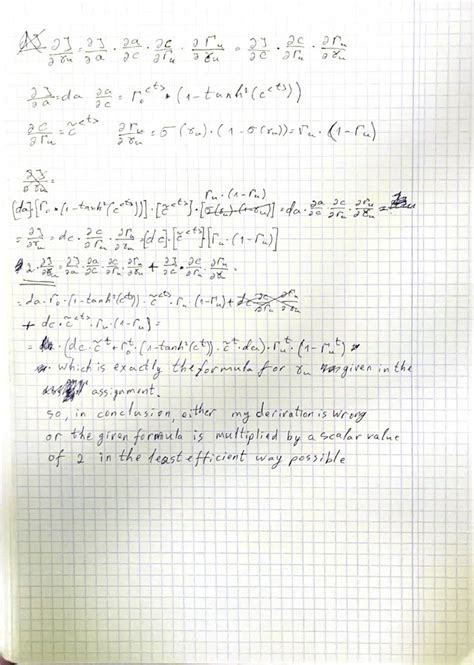 ∂J/∂γu = ∂J/∂a · ∂a/∂c · ∂c/∂Γu · ∂Γu/∂γu = ∂J/∂c · ∂c/∂Γu · ∂Γu/∂γu
∂J/∂a = da ∂a/∂c = Γo<t> * (1-tanh²(c<t>))
∂c/∂Γu = c̃<t> ∂Γu/∂γu = σ(γu)·(1-σ(γu)) = Γu·(1-Γu)
∂J/∂γu =
Γu·(1-Γu)
[da]·[Γo*(1-tanh²(c<t>))]·[c̃<t>]·[σ(γu)·(1-σ(γu))] = da · ∂a/∂c · ∂c/∂Γu · ∂Γu/∂γu =
= ∂J/∂γu = dc · ∂c/∂Γu · ∂Γu/∂γu = [dc]·[c̃<t>]·[Γu·(1-Γu)]
2 · ∂J/∂γu = ∂J/∂a · ∂a/∂c · ∂c/∂Γu · ∂Γu/∂γu + ∂J/∂c · ∂c/∂Γu · ∂Γu/∂γu.
= da·Γo·(1-tanh²(c<t>))·c̃<t>·Γu·(1-Γu) +
+ dc·c̃<t>·Γu·(1-Γu) =
= (dc·c̃<t> + Γo<t>·(1-tanh²(c<t>))·c̃<t>·da)·Γu<t>·(1-Γu<t>)
which is exactly the formula for γu given in the
assignment.
so, in conclusion, either my derivation is wrong
or the given formula is multiplied by a scalar value
of 2 in the least efficient way possible